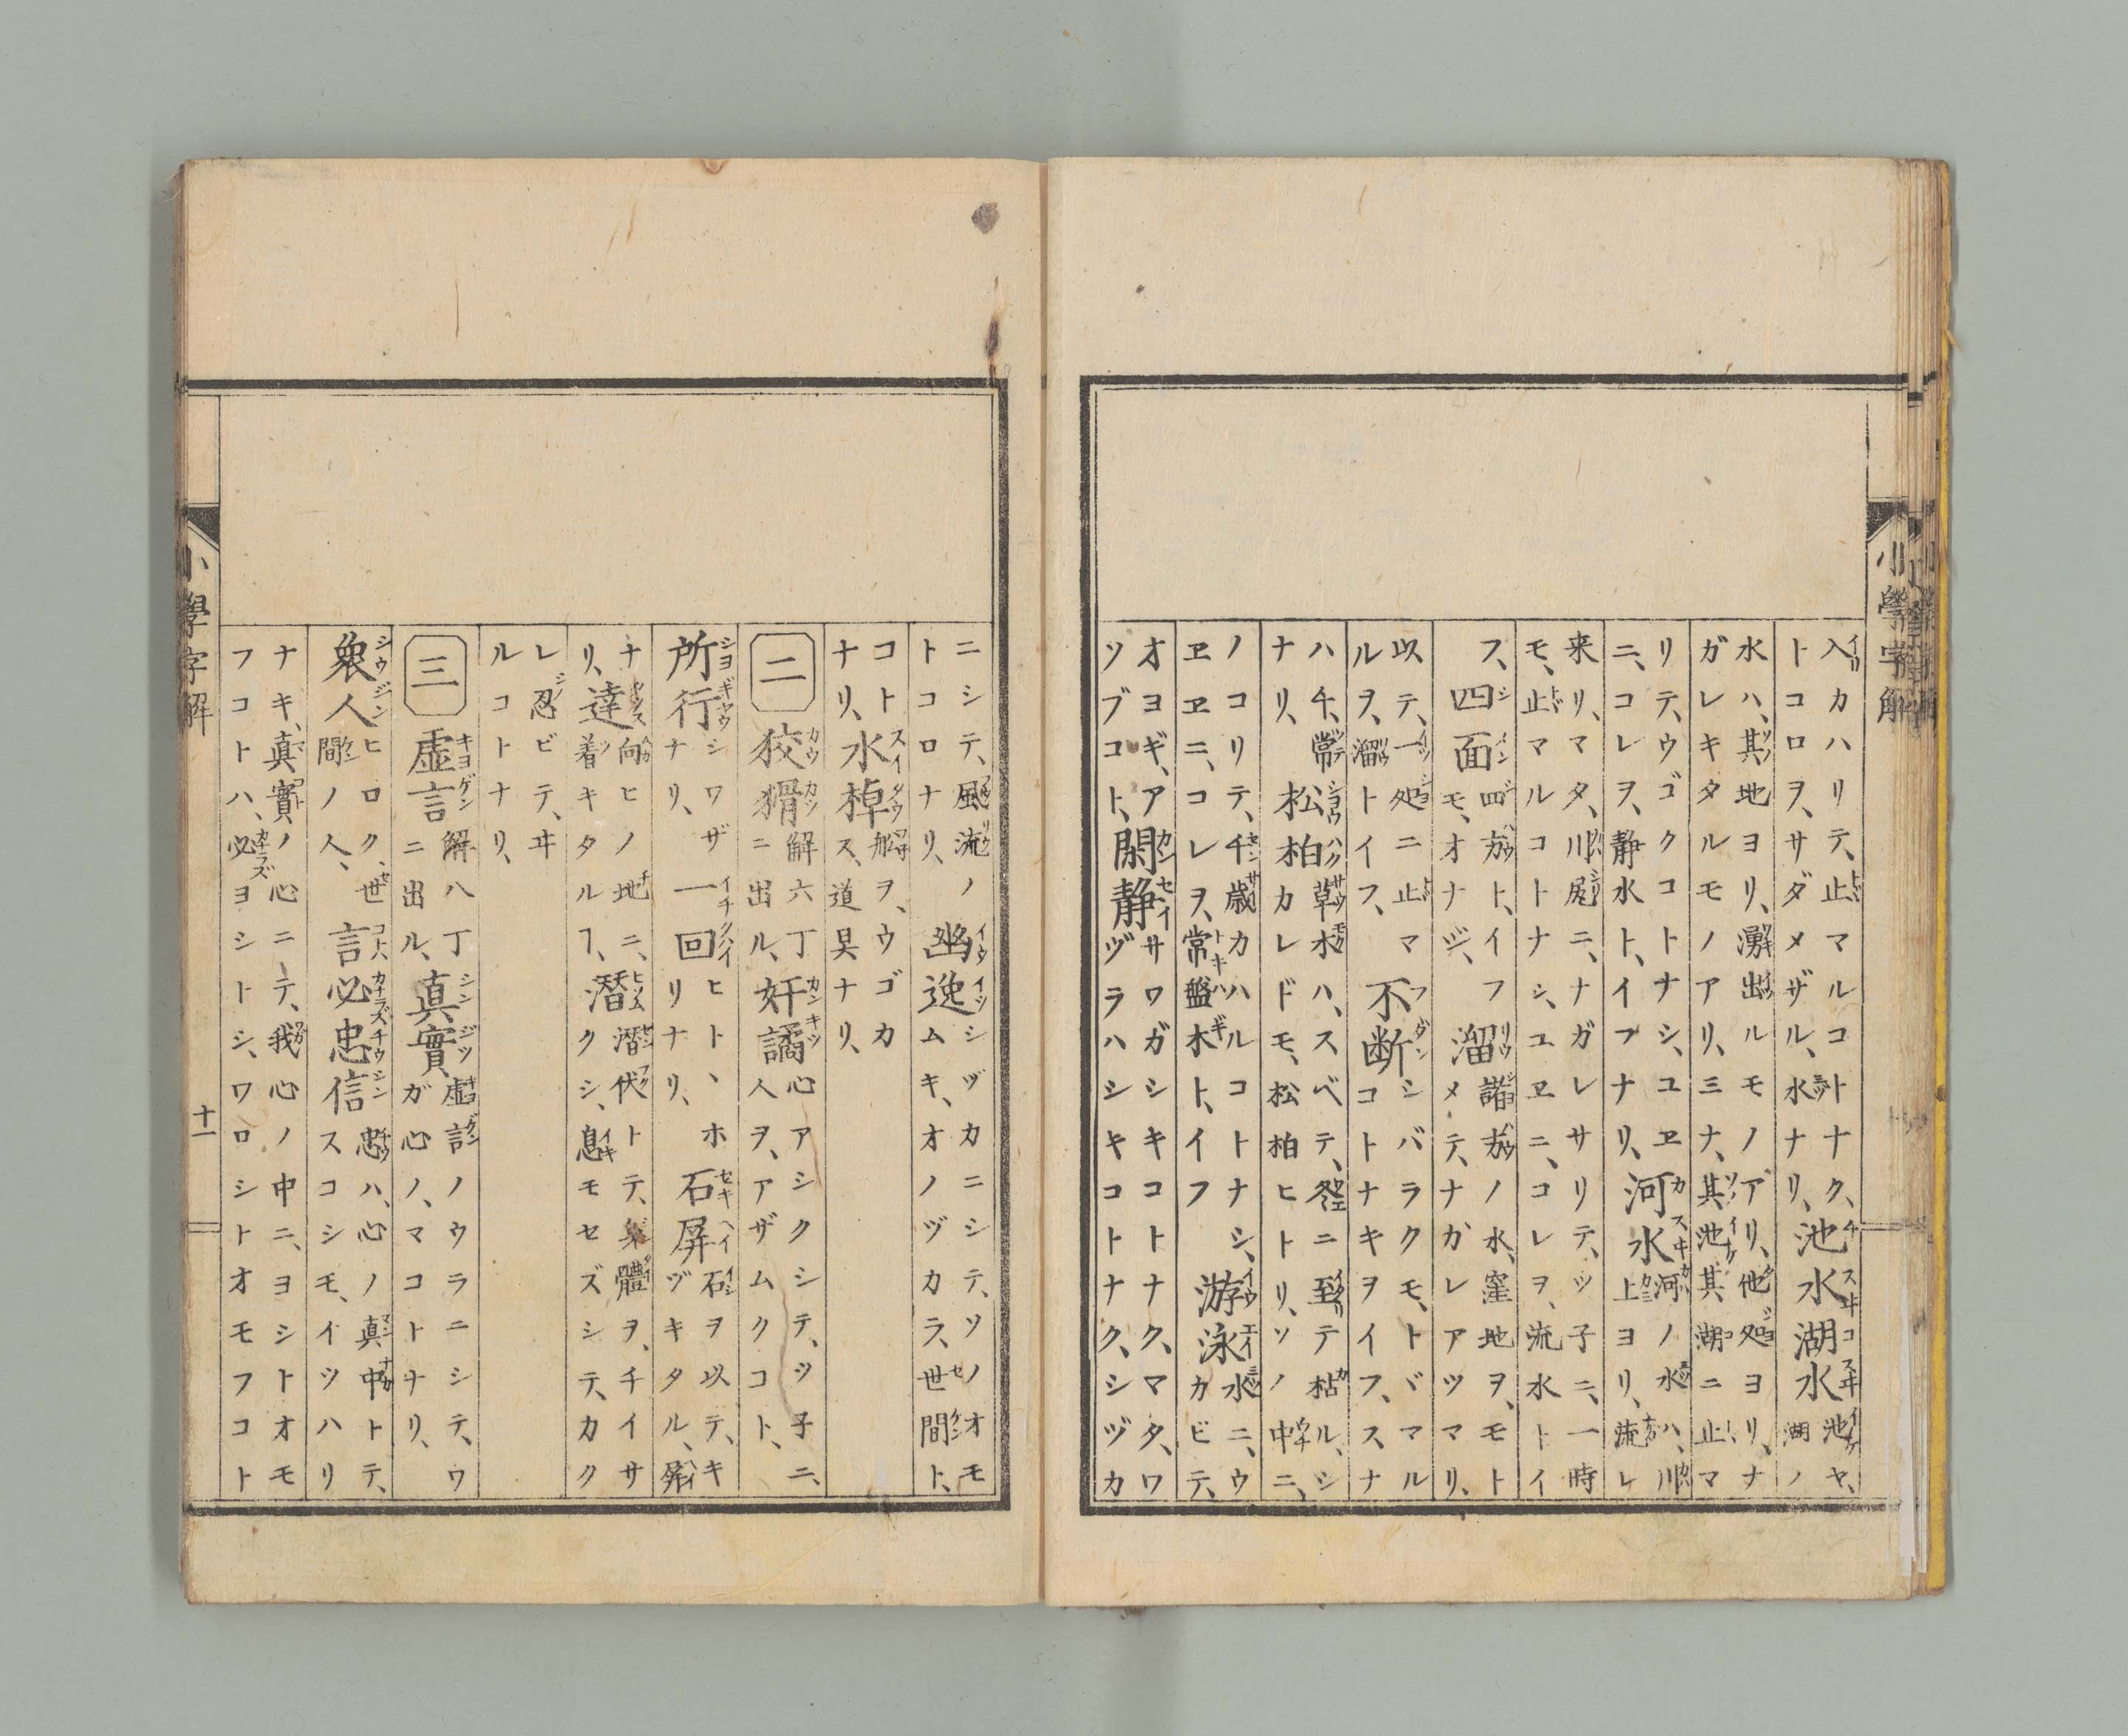 小學字解
入カハリテ、止マルコトナク、
トコロヲ、サダメザル、水ナリ、
池水湖水
池ヤ、
湖ノ
水ハ、其地ヨリ、湧出ルモノアリ、他処ヨリ、ナ
ガレキタルモノアリ、ミナ、其池其湖ニ止マ
リテ、ウゴクコトナシ、ユヱ
ニ、コレヲ、静水ト、イフナリ、
河水
河ノ水ハ、川
上ヨリ、流レ
来リ、マタ、川尻ニ、ナガレサリテ、ツ子ニ、一時
モ、止マルコトナシ、ユヱニ、コレヲ、流水トイ
フ、
四面
四方ト、イフ
モ、オナジ、
溜
諸方ノ水、窪地ヲ、モト
メテ、ナガレアツマリ、
以テ、一処ニ止マ
ルヲ、溜トイフ、
不断
シバラクモ、トドマル
コトナキヲイフ、スナ
ハチ、常
ナリ、
松柏
草木ハ、スベテ、冬ニ至リテ枯ル、シ
カレドモ、松柏ヒトリ、ソノ中ニ、
ノコリテ、千歳カハルコトナシ、
ヱヱニ、コレヲ、常盤木ト、イフ
游泳
水ニ、ウ
カビテ、
オヨギ、ア
ツブコト、
閑静
サワガシキコトナク、マタ、ワ
ヅラハシキコトナク、シヅカ
ニシテ、風流ノ
トコロナリ、
幽逸
シヅカニシテ、ソノオモ
ムキ、オノヅカラ、世間ト、
コト
ナリ、
水棹
船ヲ、ウゴカ
ス、道具ナリ、
二
狡猾
解六丁
ニ出ル、
奸譎
心アシクシテ、ツ子ニ、
人ヲ、アザムクコト、
所行
シワザ
ナリ、
一回
ヒトヽホ
リナリ、
石屏
石ヲ以テ、キ
ヅキタル、屏
ナ
リ、
達着
向ヒノ地ニ、
キタルヿ、
潜
潜伏トテ、身體ヲ、チイサ
クシ、息モセズシテ、カク
レ忍ビテ、ヰ
ルコトナリ、
三
虚言
解八丁
ニ出ル、
真實
虚言ノウラニシテ、ワ
ガ心ノ、マコトナリ、
衆人
ヒロク、世
間ノ人、
言必忠信
忠ハ、心ノ真中トテ、
スコシモ、イツハリ
ナキ、真實ノ心ニテ、我心ノ中ニ、ヨシトオモ
フコトハ、必ヨシトシ、ワロシトオモフコト
小學字解
十一